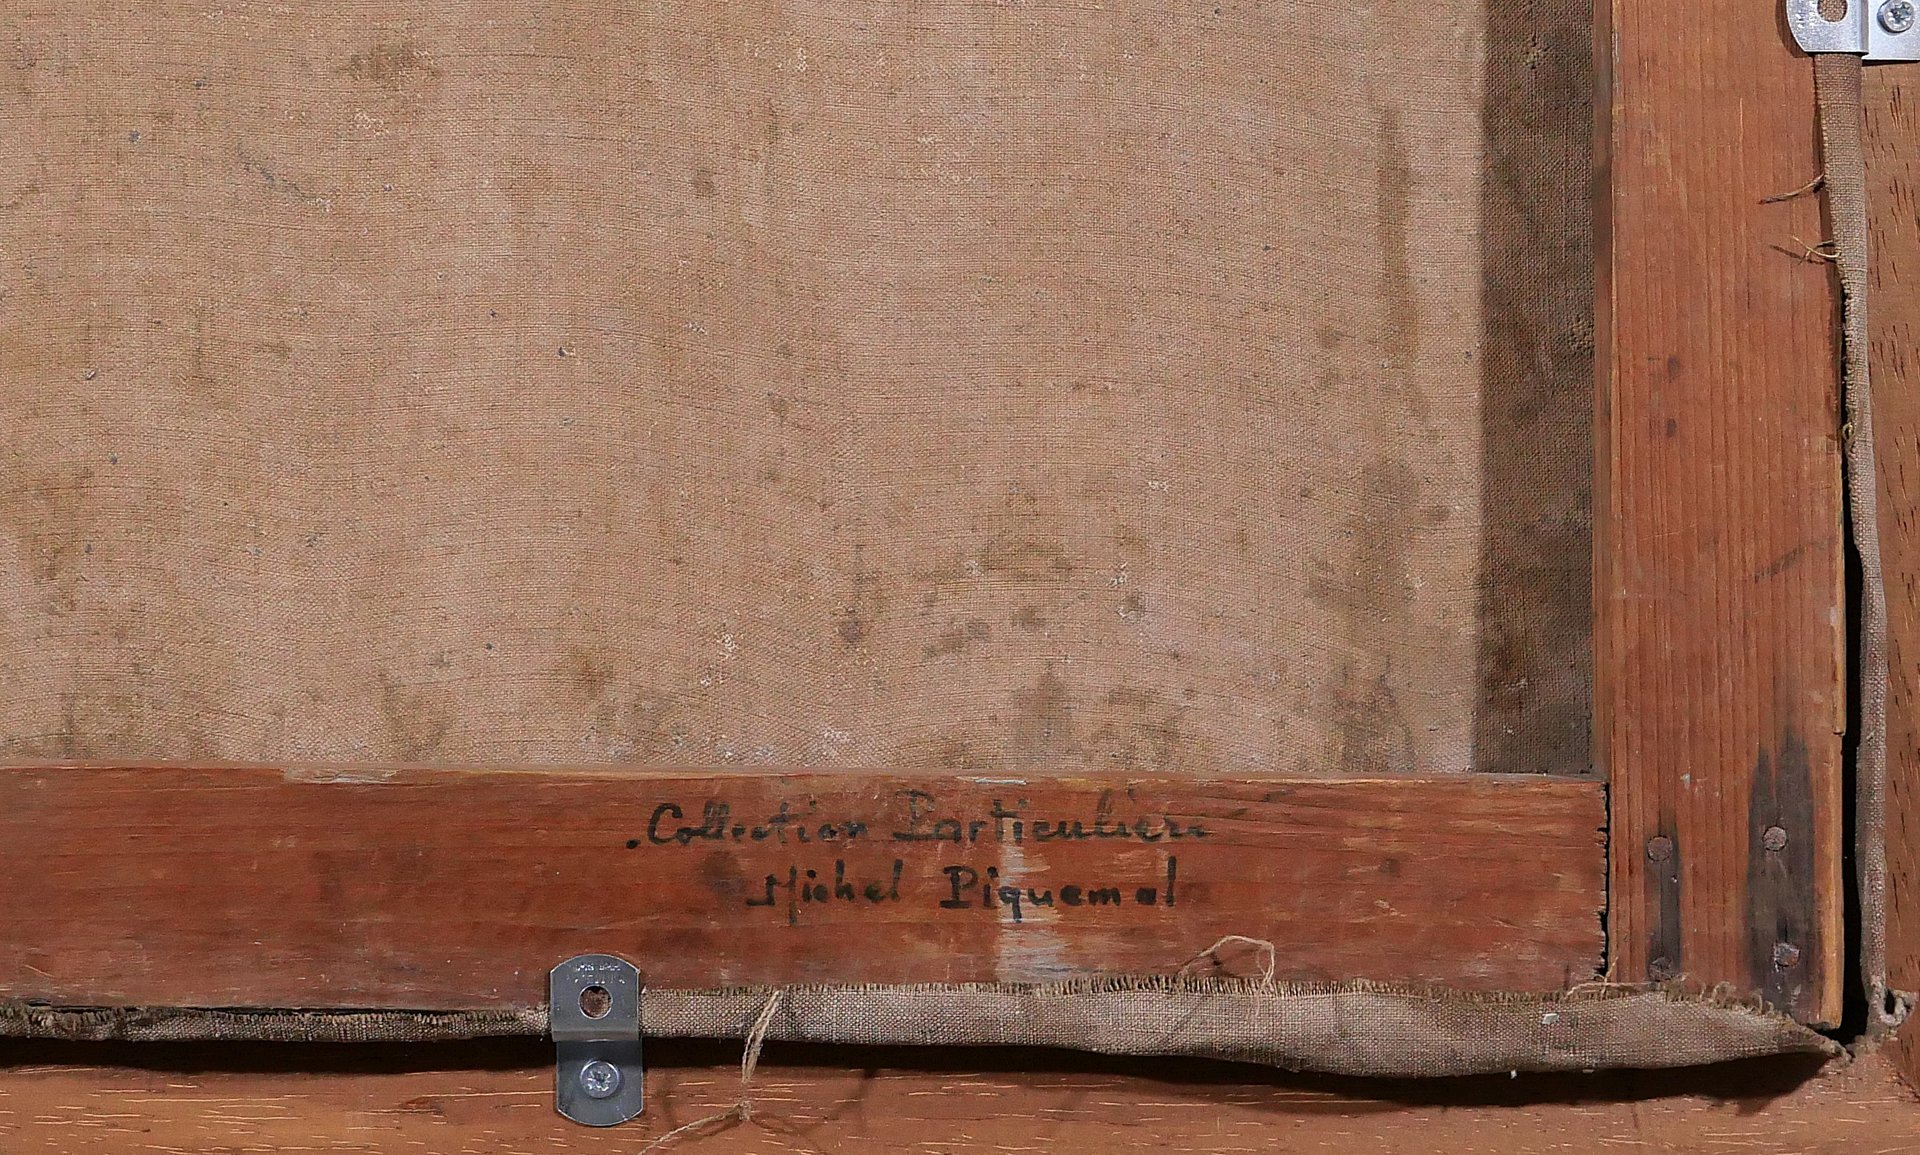 .Collection Particulière
Michel Piquemal